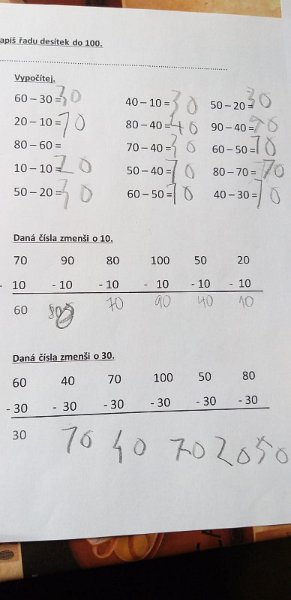 apiš řadu desítek do 100.
Vypočítej.
60 – 30 = 30 40 – 10 = 30 50 – 20 = 30
20 – 10 = 10 80 – 40 = 40 90 – 40 =
80 – 60 = 70 – 40 = 30 60 – 50 = 10
10 – 10 = 20 50 – 40 = 10 80 – 70 = 10
50 – 20 = 30 60 – 50 = 10 40 – 30 = 10
Daná čísla zmenši o 10.
70 90 80 100 50 20
- 10 - 10 - 10 - 10 - 10 - 10
60 80 70 90 40 10
Daná čísla zmenši o 30.
60 40 70 100 50 80
- 30 - 30 - 30 - 30 - 30 - 30
30 10 40 70 20 50